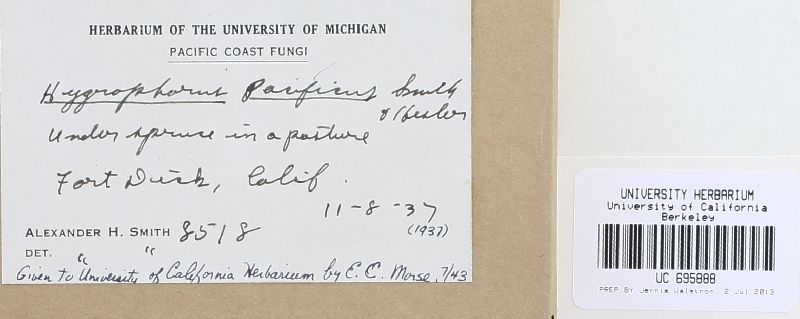 HERBARIUM OF THE UNIVERSITY OF MICHIGAN
PACIFIC COAST FUNGI
Hygrophorus Pacificus Smith
& Hesler
Under spruce in a pasture
Fort Dick, Calif.
11-8-37
(1937)
ALEXANDER H. SMITH 8518
DET. " "
Given to University of California Herbarium by E. E. Morse, 7/43
UNIVERSITY HERBARIUM
University of California
Berkeley
UC 695888
PREP BY Jennie Walstrom, 2 Jul 2013